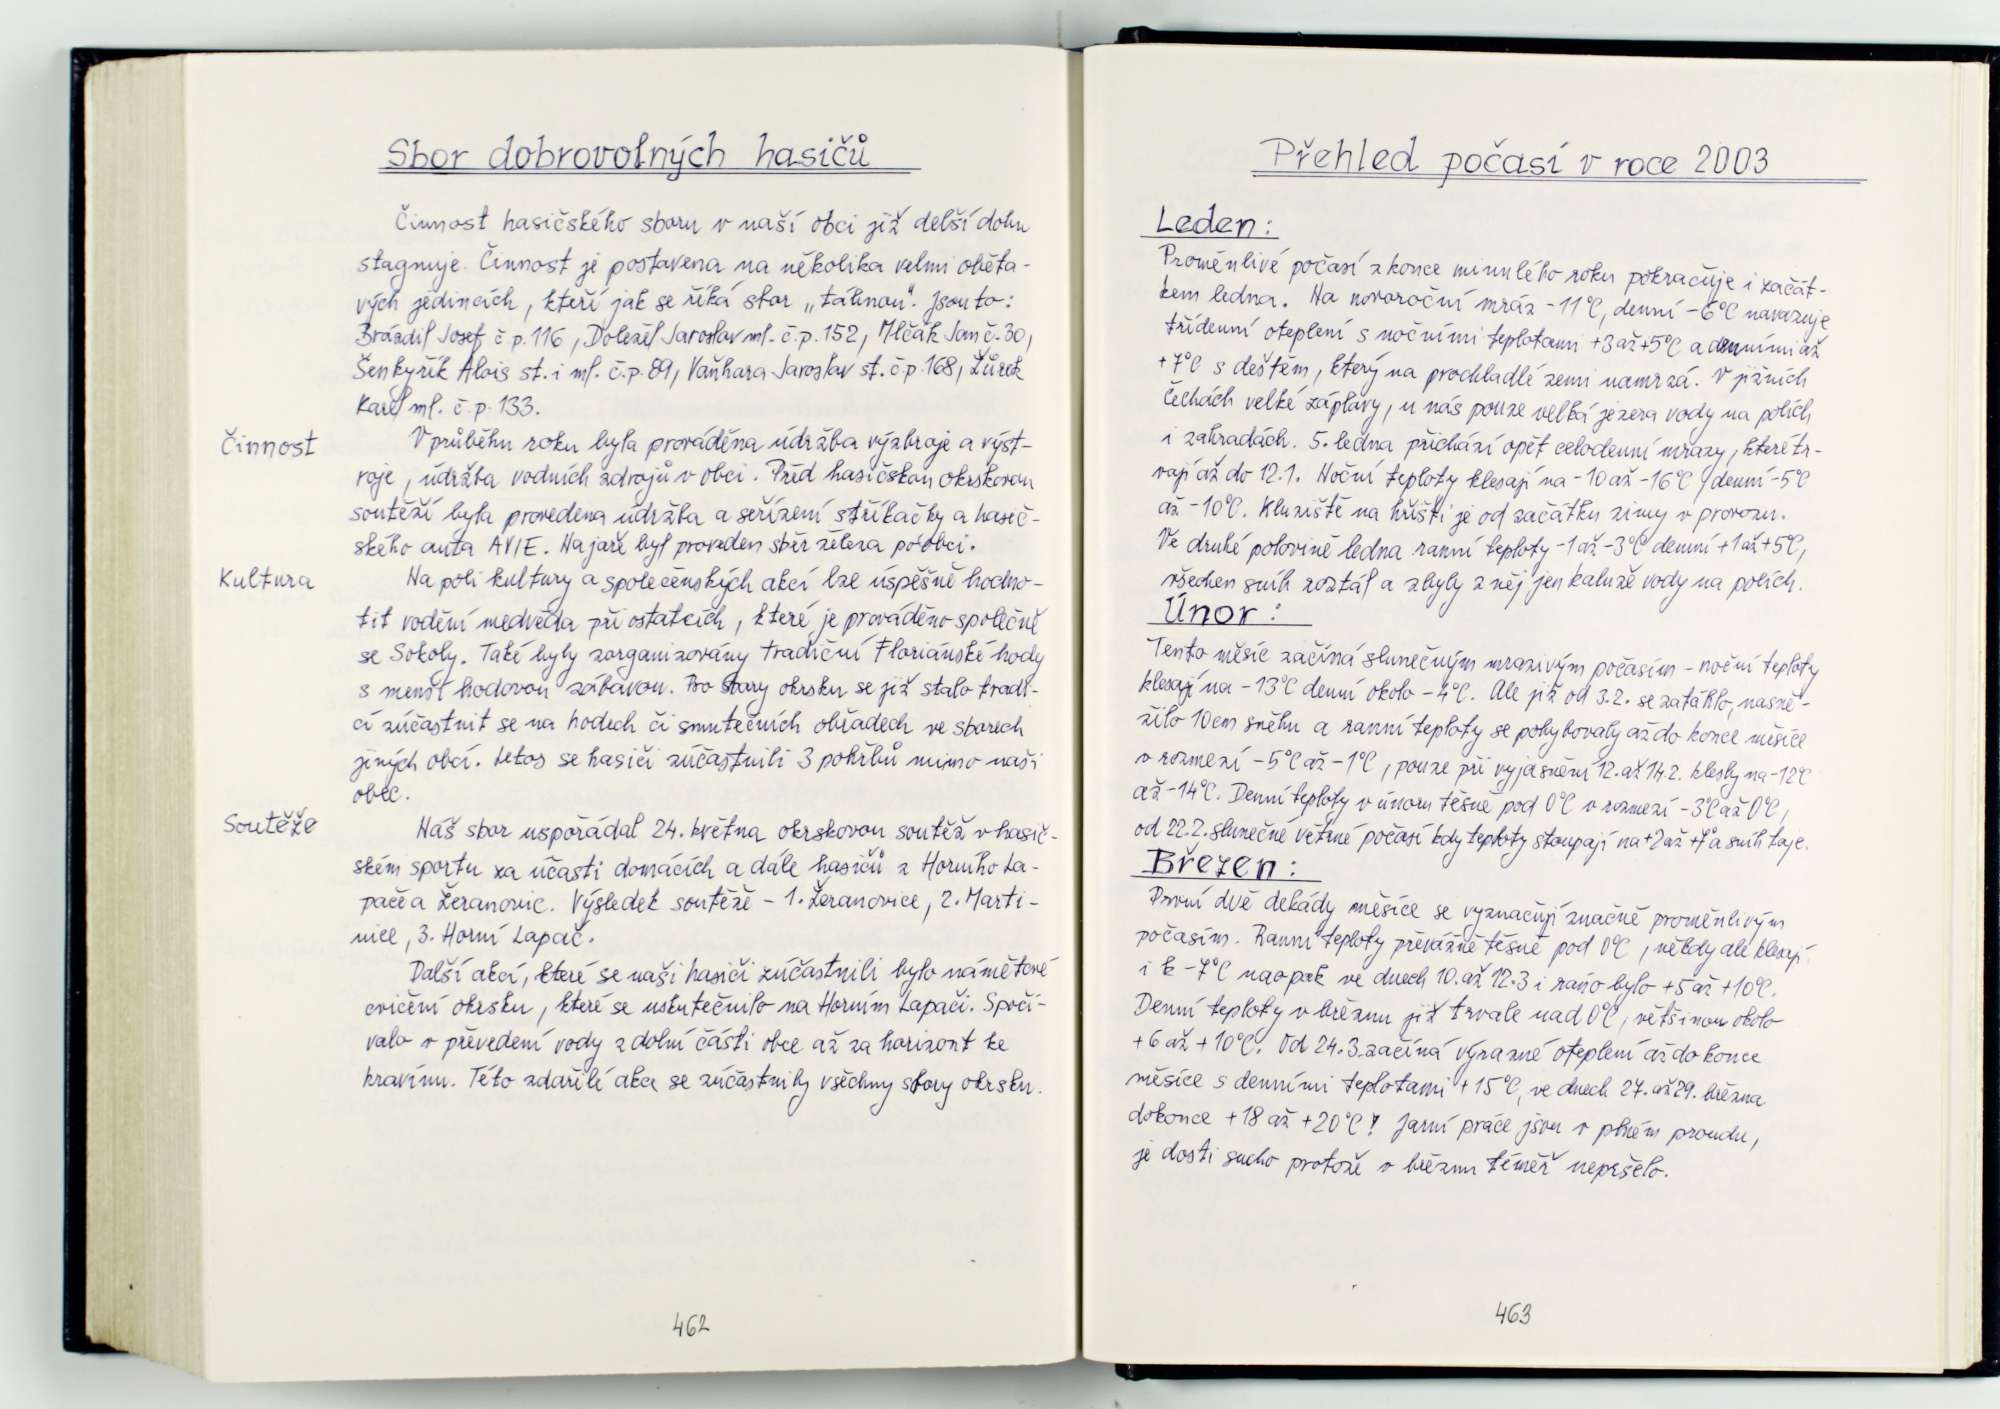 Sbor dobrovolných hasičů
Činnost hasičského sboru v naší obci již delší dobu
stagnuje. Činnost je postavena na několika velmi oběta-
vých jedincích, kteří jak se říká sbor „táhnou". Jsou to:
Brázdil Josef č.p. 116, Doležel Jaroslav ml. č.p. 152, Mlčák Jan č. 30,
Šenkyřík Alois st. i ml. č.p. 89, Vaňhara Jaroslav st. č.p. 168, Žůrek
Karel ml. č.p. 133.
Činnost
V průběhu roku byla prováděna údržba výzbroje a výst-
roje, údržba vodních zdrojů v obci. Před hasičskou okrskovou
soutěží byla provedena údržba a seřízení stříkačky a hasič-
ského auta AVIE. Na jaře byl proveden sběr železa po obci.
Kultura
Na poli kultury a společenských akcí lze úspěšně hodno-
tit vodění medvěda při ostatcích, které je prováděno společně
se Sokoly. Také byly zorganizovány tradiční Floriánské hody
s menší hodovou zábavou. Pro sbory okrsku se již stalo tradi-
cí zúčastnit se na hodech či smutečních obřadech ve sborech
jiných obcí. Letos se hasiči zúčastnili 3 pohřbů mimo naši
obec.
Soutěže
Náš sbor uspořádal 24. května okrskovou soutěž v hasič-
ském sportu za účasti domácích a dále hasičů z Horního La-
pače a Žeranovic. Výsledek soutěže - 1. Žeranovice, 2. Marti-
nice, 3. Horní Lapač.
Další akcí, které se naši hasiči zúčastnili bylo námětové
cvičení okrsku, které se uskutečnilo na Horním Lapači. Spočí-
valo v převedení vody z dolní části obce až za horizont ke
kravínu. Této zdařilé akce se zúčastnily všechny sbory okrsku.
462
Přehled počasí v roce 2003
Leden:
Proměnlivé počasí z konce minulého roku pokračuje i začát-
kem ledna. Na novoroční mráz -11°C, denní -6°C navazuje
třídenní oteplení s nočními teplotami +3 až +5°C a denními až
+7°C s deštěm, který na prochladlé zemi namrzá. V jižních
Čechách velké záplavy, u nás pouze velká jezera vody na polích
i zahradách. 5. ledna přichází opět celodenní mrazy, které tr-
vají až do 12.1. Noční teploty klesají na -10 až -16°C, denní -5°C
až -10°C. Kluziště na hřišti je od začátku zimy v provozu.
Ve druhé polovině ledna ranní teploty -1 až -3°C denní +1 až +5°C,
všechen sníh roztál a zbyly z něj jen kaluže vody na polích.
Únor:
Tento měsíc začíná slunečným mrazivým počasím - noční teploty
klesají na -13°C denní okolo -4°C. Ale již od 3.2. se zatáhlo, nasně-
žilo 10cm sněhu a ranní teploty se pohybovaly až do konce měsíce
v rozmezí -5°C až -1°C, pouze při vyjasnění 12. až 14.2. klesly na -12°C
až -14°C. Denní teploty v únoru těsně pod 0°C v rozmezí -3°C až 0°C,
od 22.2. slunečné větrné počasí kdy teploty stoupají na +2 až +7° a sníh taje.
Březen:
První dvě dekády měsíce se vyznačují značně proměnlivým
počasím. Ranní teploty převážně těsně pod 0°C, někdy ale klesají
i k -7°C naopak ve dnech 10. až 12.3 i ráno bylo +5 až +10°C.
Denní teploty v březnu již trvale nad 0°C, většinou okolo
+6 až +10°C. Od 24.3. začíná výrazné oteplení až do konce
měsíce s denními teplotami +15°C, ve dnech 27. až 29. března
dokonce +18 až +20°C! Jarní práce jsou v plném proudu,
je dosti sucho protože v březnu téměř nepršelo.
463